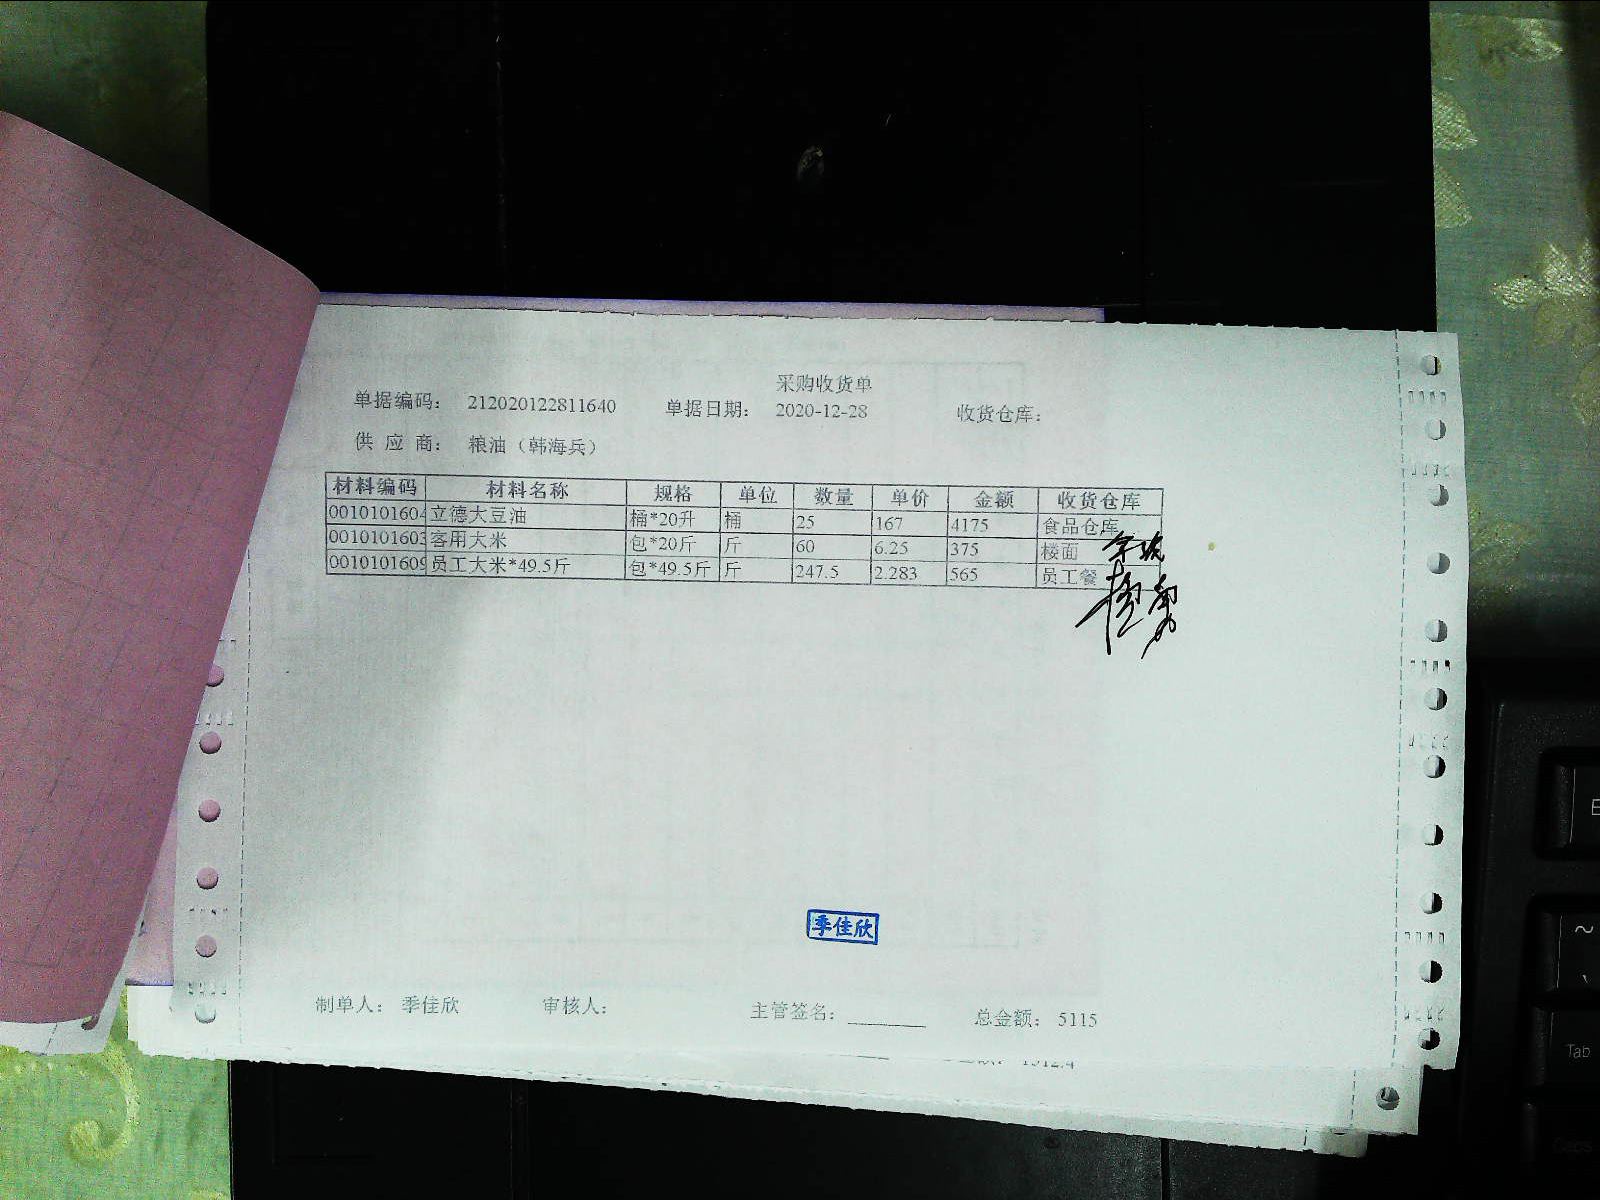 采购收货单
单据编码： 212020122811640 单据日期： 2020-12-28 收货仓库：
供 应 商： 粮油（韩海兵）
材料编码 材料名称 规格 单位 数量 单价 金额 收货仓库
0010101604 立德大豆油 桶*20升 桶 25 167 4175 食品仓库
0010101603 客用大米 包*20斤 斤 60 6.25 375 楼面
0010101609 员工大米*49.5斤 包*49.5斤 斤 247.5 2.283 565 员工餐
季佳欣
制单人： 季佳欣 审核人： 主管签名： 总金额： 5115
1312.4
Tab
Caps